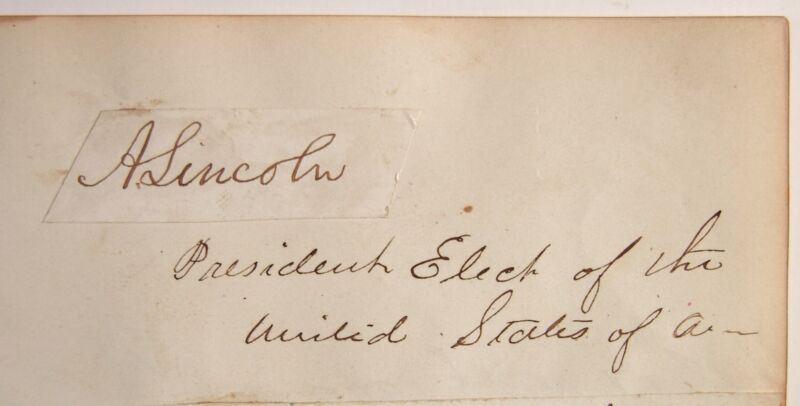 A. Lincoln
President Elect of the
United States of A—